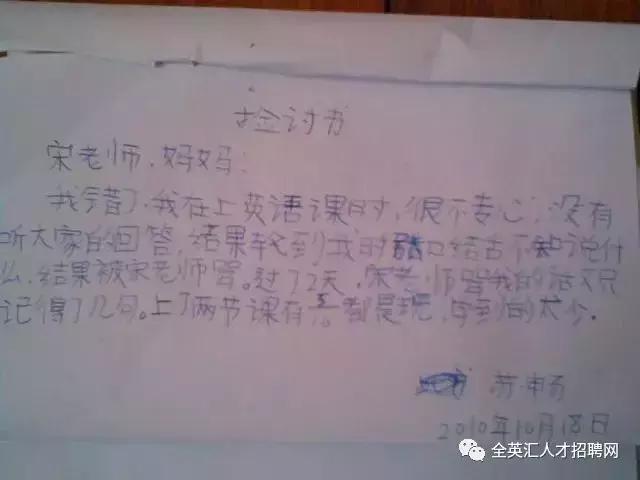 捡讨书
宋老师、妈妈:
我错了,我在上英语课时,很不专心,没有
听大家的回答,结果轮到我时口结舌不知说什
么,结果被宋老师骂。过了2天,宋老师骂我的话又只
记得了几句。上了两节课有都是玩,学到的太少。
苏畅
2010年10月18日
全英汇人才招聘网